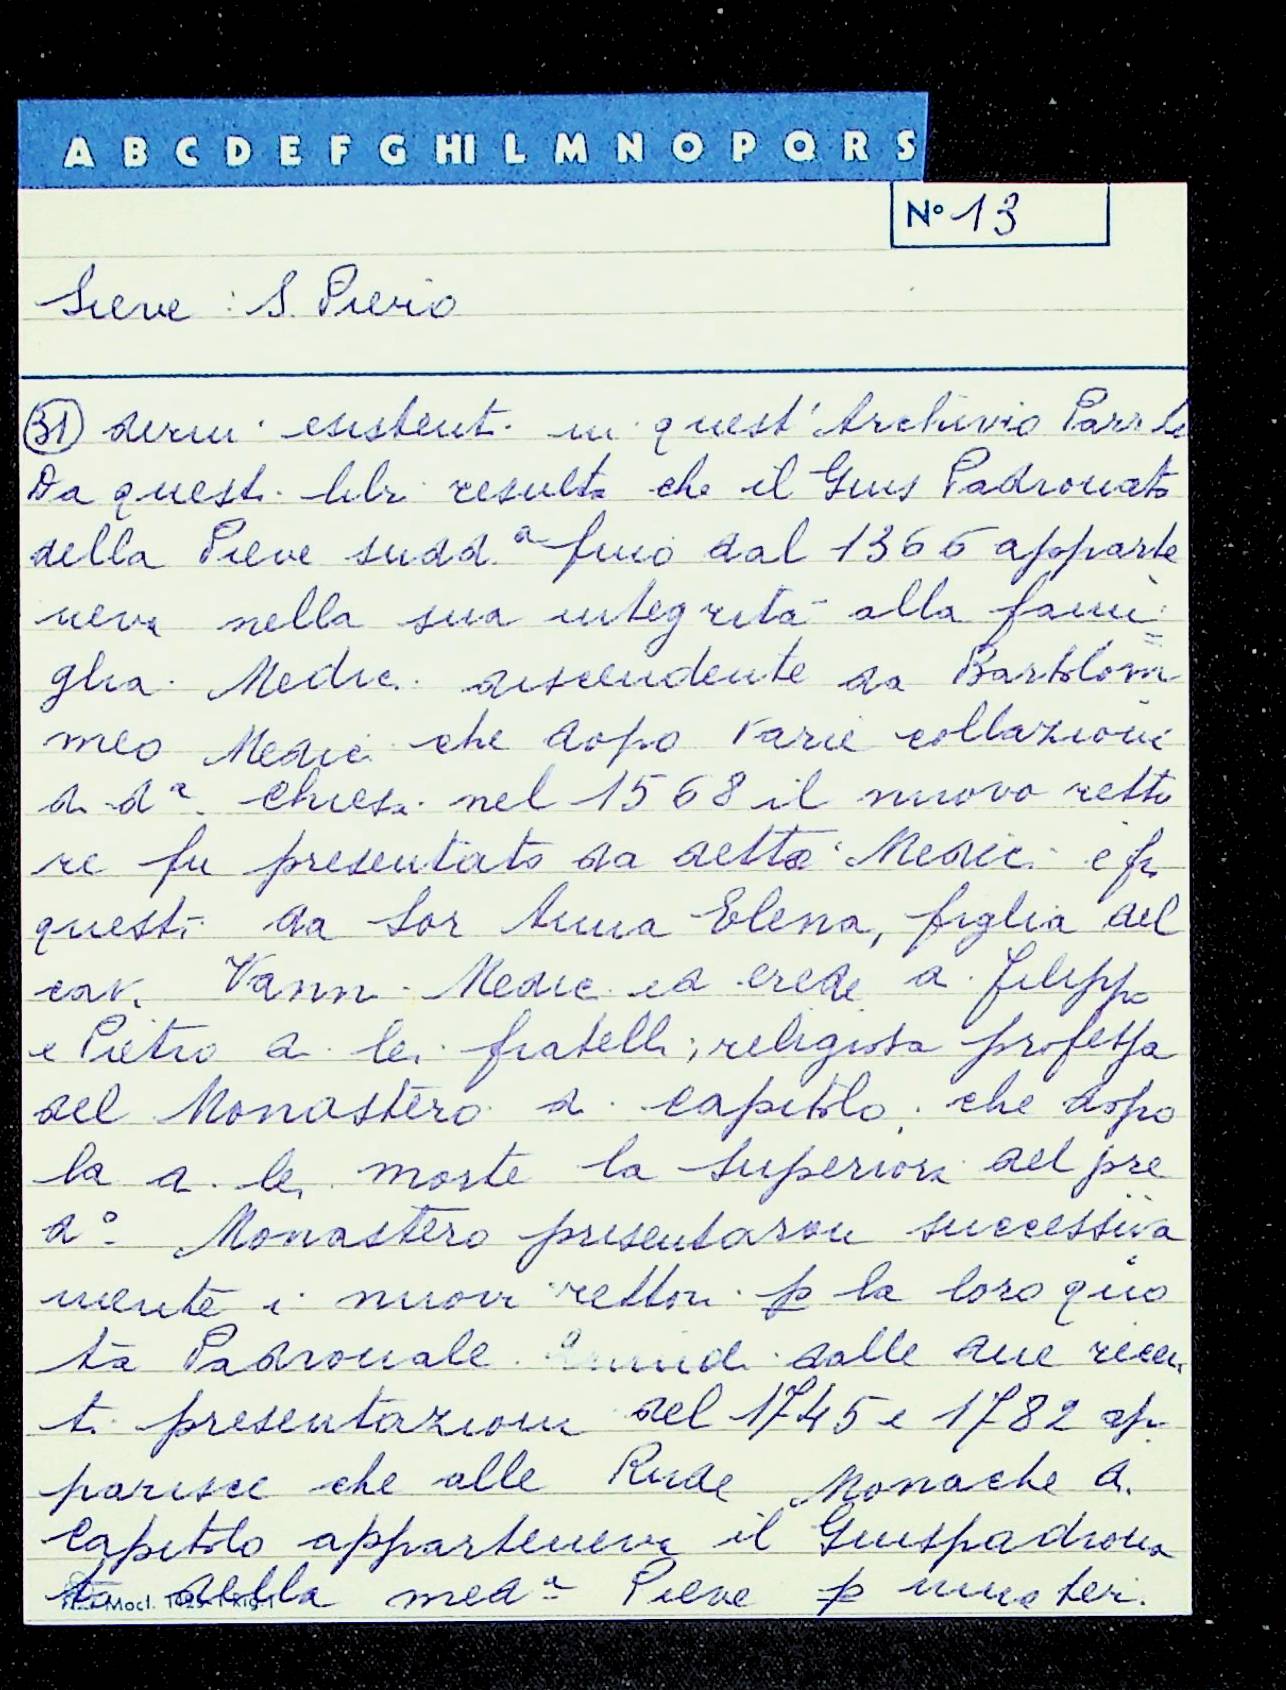 A B C D E F G HI L M N O P Q R S
N° 13
Sieve : S. Piero
31 derni esistenti in quest'Archivio Parr.le
Da questi libri resulta che il Gius Padronato
della Pieve sudd.a fino dal 1366 apparte
neva nella sua integrità alla fami=
glia Medici discendente da Bartolom
meo Medici che dopo varie collazioni
di d.a Chiesa nel 1568 il nuovo retto
re fu presentato da detta Medici e
questi da Sor Anna Elena, figlia del
cav. Vanni Medici ed erede di Filippo
e Pietro di lei fratelli, religiosa professa
del Monastero di Capitolo, che dopo
la di lei morte la Superiora del pre
d.o Monastero presentaron successiva
mente i nuovi rettori p la loro quo
ta Padronale. dalle due recen
ti presentazioni del 1745 e 1782 ap
parisce che alle Rnde Monache di
Capitolo apparteneva il Giuspadrona
to della med.a Pieve p una ter.